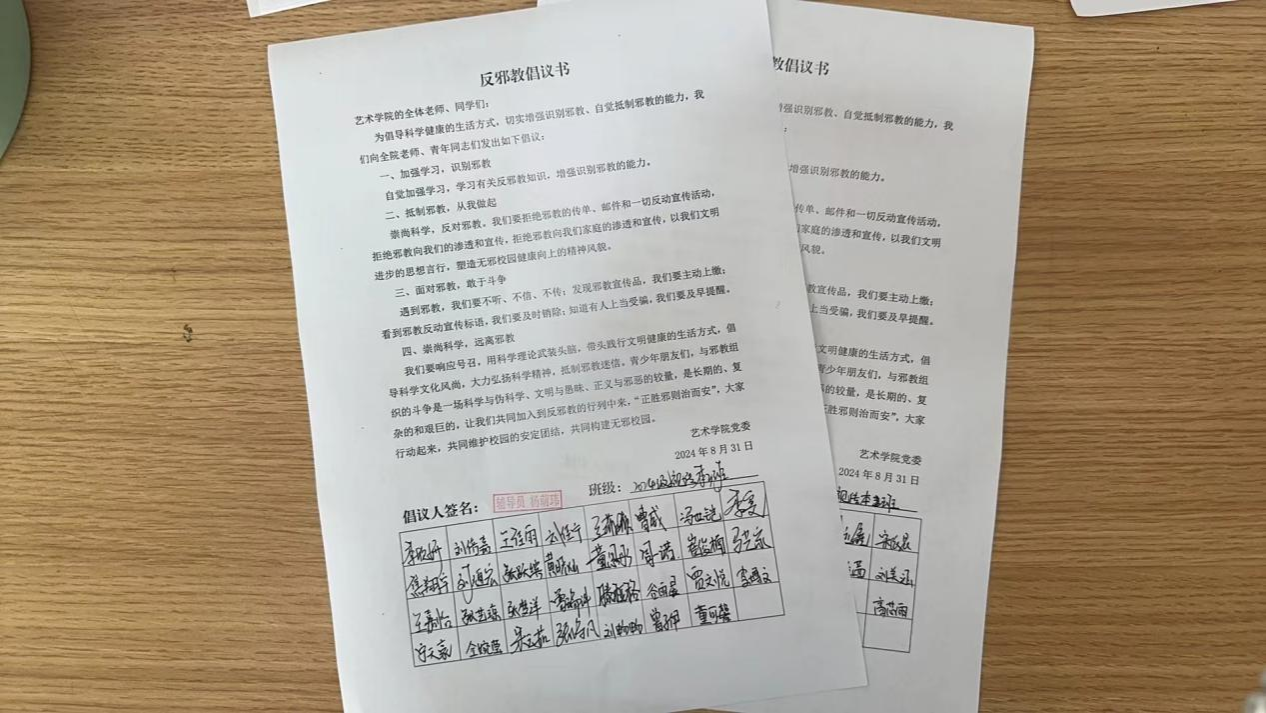 反邪教倡议书
艺术学院的全体老师、同学们：
为倡导科学健康的生活方式，切实增强识别邪教、自觉抵制邪教的能力，我
们向全院老师、青年同志们发出如下倡议：
一、加强学习，识别邪教
自觉加强学习，学习有关反邪教知识，增强识别邪教的能力。
二、抵制邪教，从我做起
崇尚科学，反对邪教。我们要拒绝邪教的传单、邮件和一切反动宣传活动，
拒绝邪教向我们的渗透和宣传，拒绝邪教向我们家庭的渗透和宣传，以我们文明
进步的思想言行，塑造无邪校园健康向上的精神风貌。
三、面对邪教，敢于斗争
遇到邪教，我们要不听、不信、不传；发现邪教宣传品，我们要主动上缴；
看到邪教反动宣传标语，我们要及时销除；知道有人上当受骗，我们要及早提醒。
四、崇尚科学，远离邪教
我们要响应号召，用科学理论武装头脑，带头践行文明健康的生活方式，倡
导科学文化风尚，大力弘扬科学精神，抵制邪教迷信，青少年朋友们，与邪教组
织的斗争是一场科学与伪科学、文明与愚昧、正义与邪恶的较量，是长期的、复
杂的和艰巨的，让我们共同加入到反邪教的行列中来，“正胜邪则治而安”，大家
行动起来，共同维护校园的安定团结，共同构建无邪校园。
艺术学院党委
2024 年 8 月 31 日
班级：
倡议人签名： 辅导员
王佳雨
曾威
王嘉怡 张艺璇 张楚洋 谷雨晨 贾文悦
教倡议书
增强识别邪教、自觉抵制邪教的能力，我
增强识别邪教的能力。
传单、邮件和一切反动宣传活动，
家庭的渗透和宣传，以我们文明
风貌。
教宣传品，我们要主动上缴；
上当受骗，我们要及早提醒。
文明健康的生活方式，倡
青少年朋友们，与邪教组
恶的较量，是长期的、复
正胜邪则治而安”，大家
艺术学院党委
2024 年 8 月 31 日